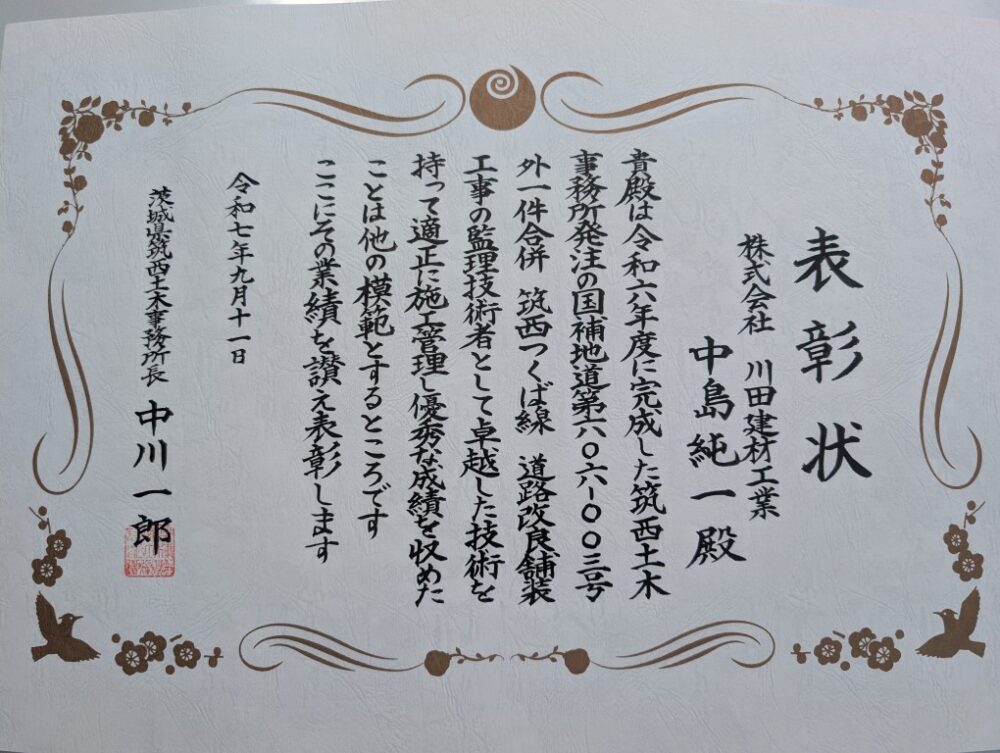 表彰状
株式会社 川田建材工業
中島純一殿
貴殿は令和六年度に完成した筑西土木
事務所発注の国補地道第六〇六-〇〇三号
外一件合併 筑西つくば線 道路改良舗装
工事の監理技術者として卓越した技術を
持って適正に施工管理し優秀な成績を収めた
ことは他の模範とするところです
ここにその業績を讃え表彰します
令和七年九月十一日
茨城県筑西土木事務所長 中川一郎